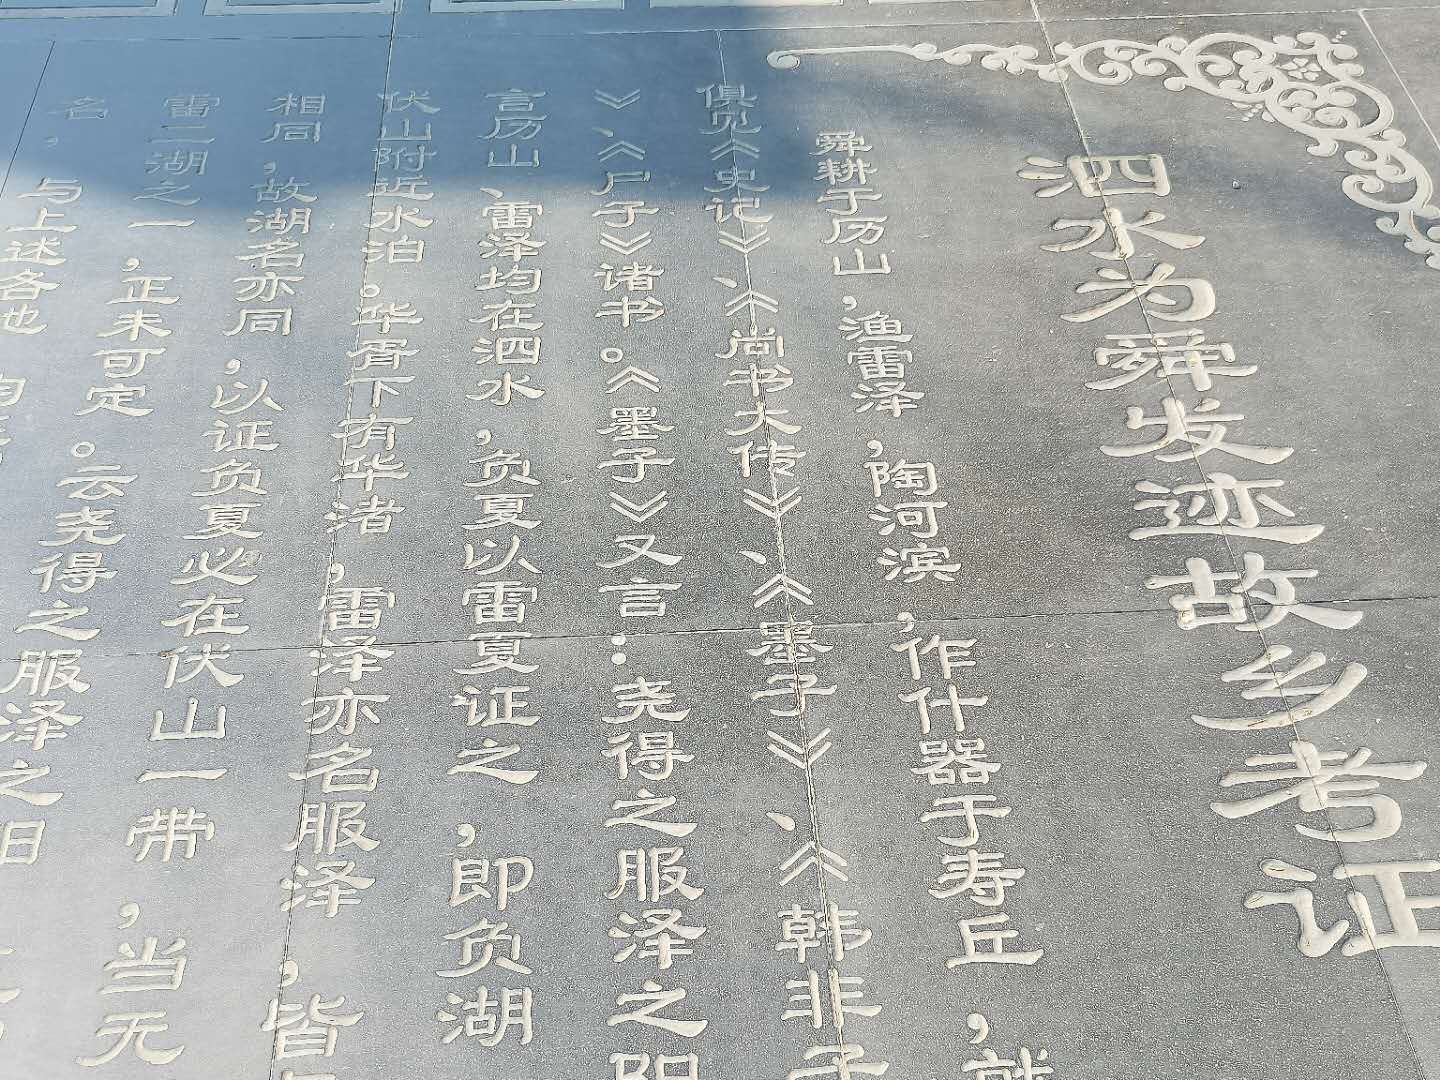 泗水为舜发迹故乡考证
舜耕于历山，渔雷泽，陶河滨，作什器于寿丘，就
俱见《史记》、《尚书大传》、《墨子》、《韩非子
》、《尸子》诸书。《墨子》又言：尧得之服泽之阳
言历山、雷泽均在泗水，负夏以雷夏证之，即负湖
伏山附近水泊。华胥下有华渚，雷泽亦名服泽，皆
相同，故湖名亦同，以证负夏必在伏山一带，当无
雷二湖之一，正未可定。云尧得之服泽之
名，与上述各也